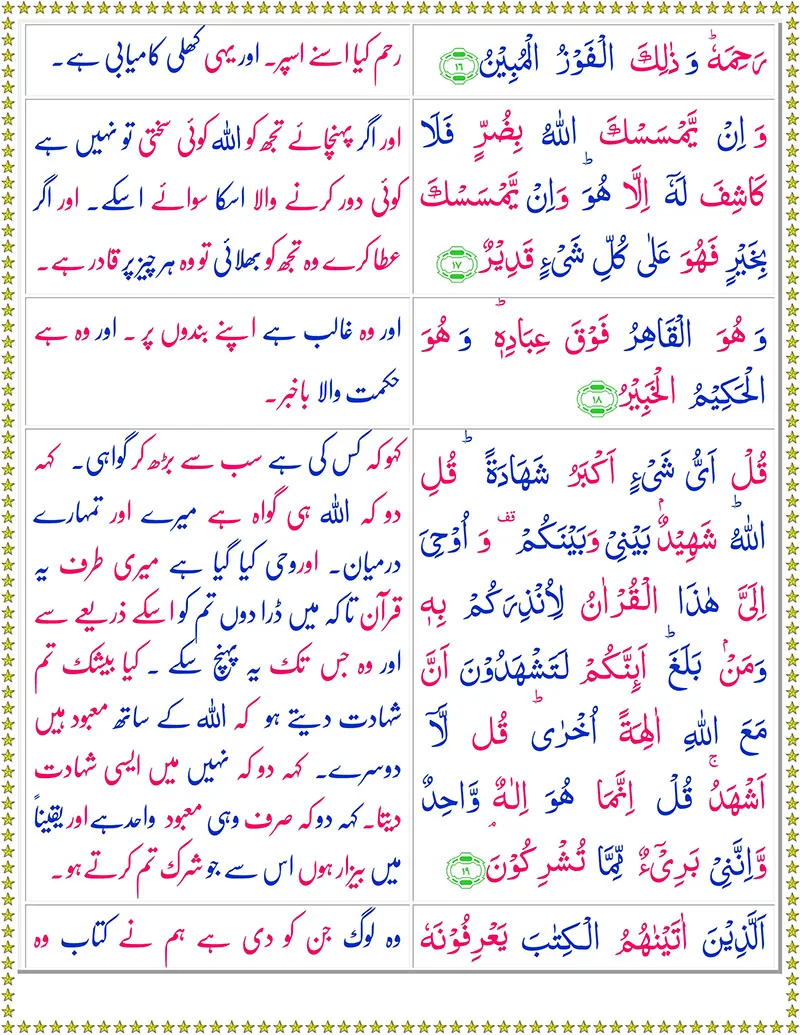 رَحِمَهٗ ؕ وَ ذٰلِكَ الْفَوْزُ الْمُبِیْنُ ۝۱۶
رحم کیا اسنے اسپر۔ اور یہی کھلی کامیابی ہے۔
وَ اِنْ یَّمْسَسْكَ اللّٰهُ بِضُرٍّ فَلَا
كَاشِفَ لَهٗۤ اِلَّا هُوَ ؕ وَاِنْ یَّمْسَسْكَ
بِخَیْرٍ فَهُوَ عَلٰی كُلِّ شَیْءٍ قَدِیْرٌ ۝۱۷
اور اگر پہنچائے تجھ کو اللہ کوئی سختی تو نہیں ہے
کوئی دور کرنے والا اسکا سوائے اسکے۔ اور اگر
عطا کرے وہ تجھ کو بھلائی تو وہ ہر چیز پر قادر ہے۔
وَ هُوَ الْقَاهِرُ فَوْقَ عِبَادِهٖ ؕ وَ هُوَ
الْحَكِیْمُ الْخَبِیْرُ ۝۱۸
اور وہ غالب ہے اپنے بندوں پر۔ اور وہ ہے
حکمت والا باخبر۔
قُلْ اَیُّ شَیْءٍ اَكْبَرُ شَهَادَةً ؕ قُلِ
اللّٰهُ ۙ۫ شَهِیْدٌۢ بَیْنِیْ وَبَیْنَكُمْ ۫ وَ اُوْحِیَ
اِلَیَّ هٰذَا الْقُرْاٰنُ لِاُنْذِرَكُمْ بِهٖ
وَمَنْۢ بَلَغَ ؕ اَىِٕنَّكُمْ لَتَشْهَدُوْنَ اَنَّ
مَعَ اللّٰهِ اٰلِهَةً اُخْرٰی ؕ قُل لَّاۤ
اَشْهَدُ ۚ قُلْ اِنَّمَا هُوَ اِلٰهٌ وَّاحِدٌ
وَّاِنَّنِیْ بَرِیْٓءٌ مِّمَّا تُشْرِكُوْنَ ۝۱۹
کہو کہ کس کی ہے سب سے بڑھ کر گواہی۔ کہہ
دو کہ اللہ ہی گواہ ہے میرے اور تمہارے
درمیان۔ اور وحی کیا گیا ہے میری طرف یہ
قرآن تاکہ میں ڈرا دوں تم کو اسکے ذریعے سے
اور وہ جس تک یہ پہنچ سکے۔ کیا بیشک تم
شہادت دیتے ہو کہ اللہ کے ساتھ معبود ہیں
دوسرے۔ کہہ دو کہ نہیں میں ایسی شہادت
دیتا۔ کہہ دو کہ صرف وہی معبود واحد ہے اور یقیناً
میں بیزار ہوں اس سے جو شرک تم کرتے ہو۔
اَلَّذِیْنَ اٰتَیْنٰهُمُ الْكِتٰبَ یَعْرِفُوْنَهٗ
وہ لوگ جن کو دی ہے ہم نے کتاب وہ